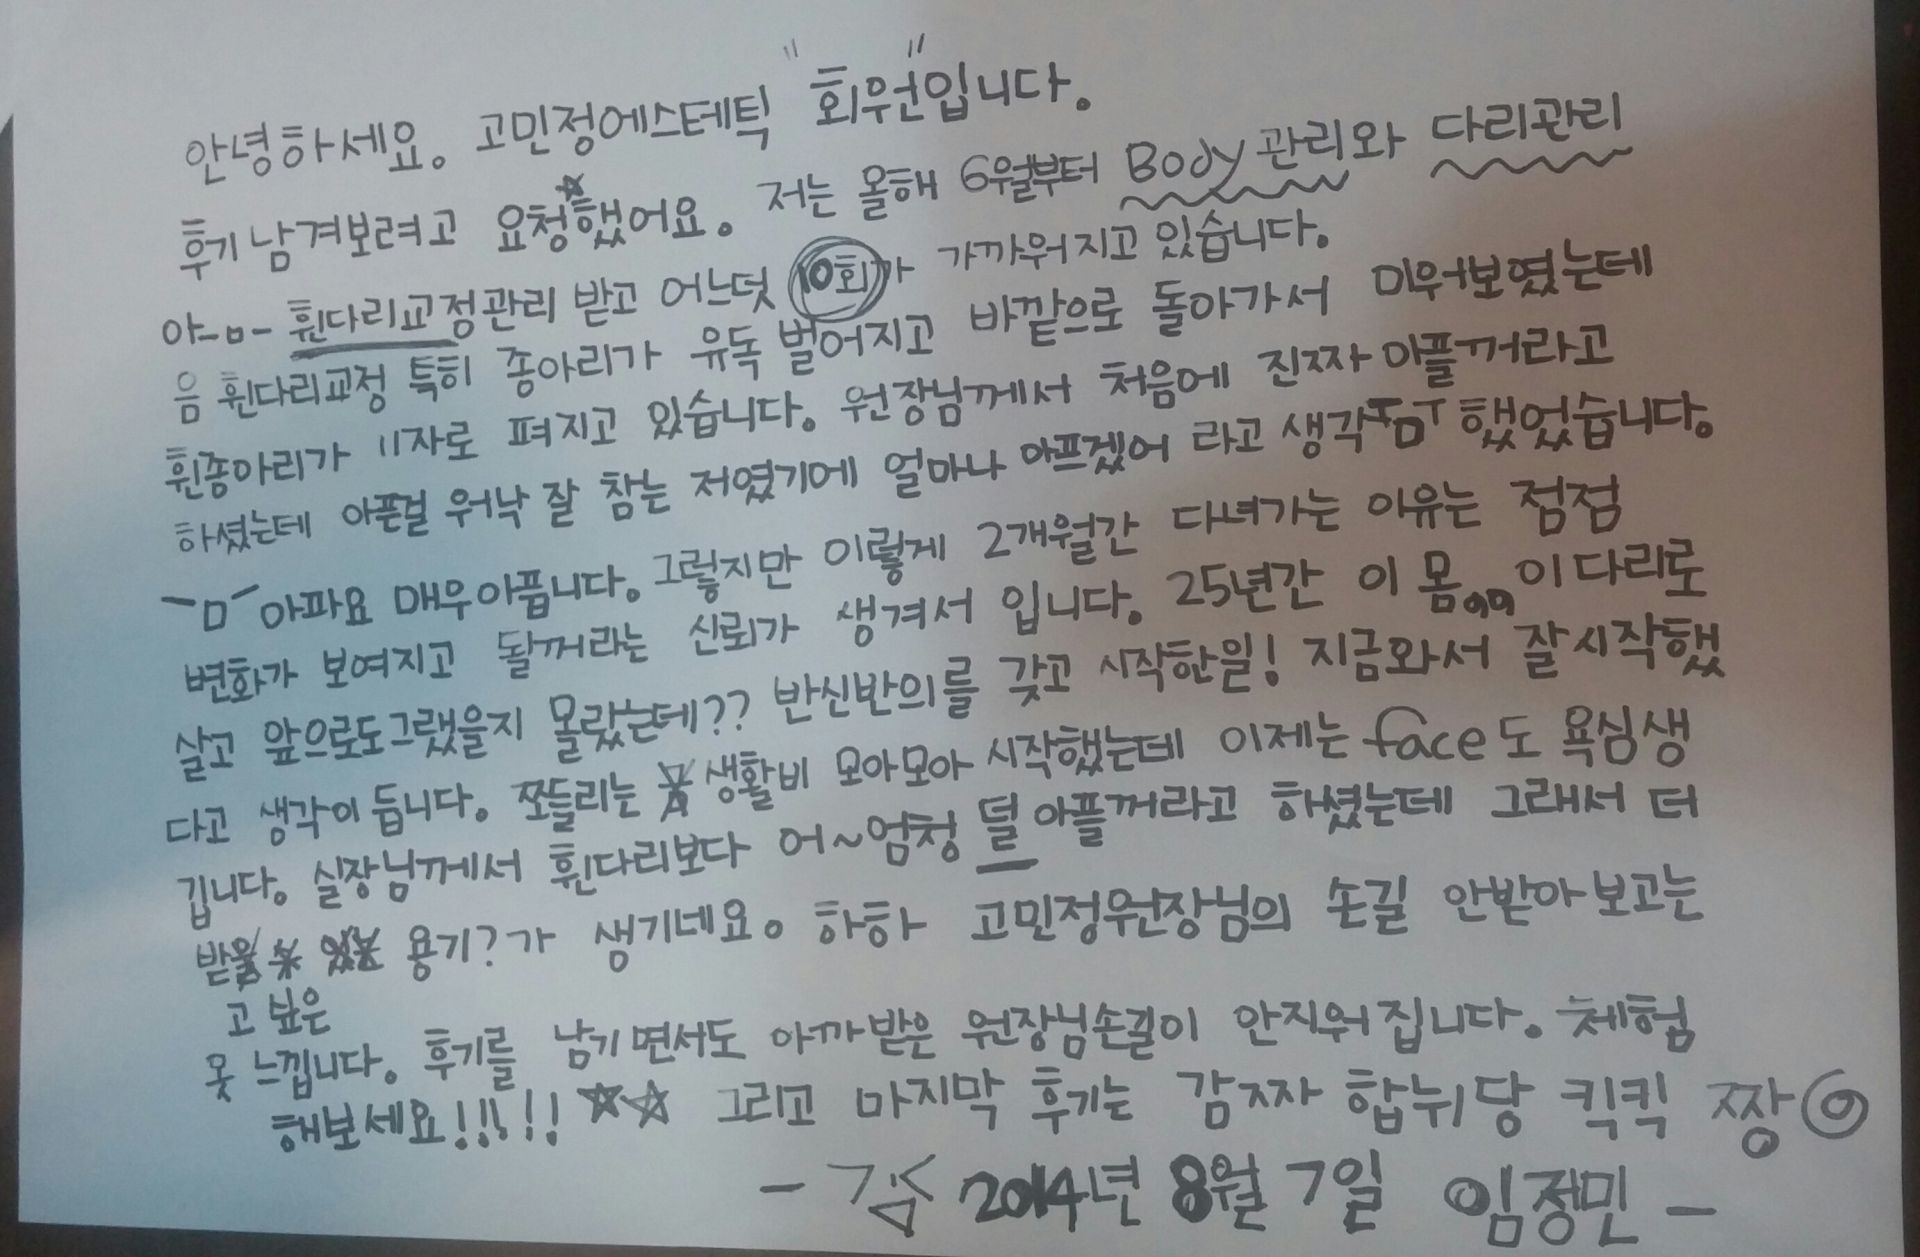 안녕하세요。 고민정에스테틱 "회원"입니다。
후기 남겨보려고 요청☆했어요。 저는 올해 6월부터 Body관리와 다리관리
아-ㅁ- 휜다리교정관리 받고 어느덧 10회가 가까워지고 있습니다.
음 휜다리교정 특히 종아리가 유독 벌어지고 바깥으로 돌아가서 미워보였는데
휜종아리가 11자로 펴지고 있습니다. 원장님께서 처음에 진짜 아플꺼라고
하셨는데 아픈걸 워낙 잘 참는 저였기에 얼마나 아프겠어 라고 생각ㅜㅁㅜ 했었습니다.
ㅡㅁㅡ 아파요 매우아픕니다. 그렇지만 이렇게 2개월간 다녀가는 이유는 점점
변화가 보여지고 될꺼라는 신뢰가 생겨서 입니다. 25년간 이 몸 이 다리로
살고 앞으로도그랬을지 몰랐는데?? 반신반의를 갖고 시작한일! 지금와서 잘시작했
다고 생각이 듭니다. 쪼들리는 ☆생활비 모아모아 시작했는데 이제는 face도 욕심생
깁니다. 실장님께서 휜다리보다 어~엄청 덜 아플꺼라고 하셨는데 그래서 더
받 용기?가 생기네요。 하하 고민정원장님의 손길 안받아보고는
고 싶은
못 느낍니다. 후기를 남기면서도 아까받은 원장님손길이 안지워집니다. 체험
해보세요!!!!! ☆☆ 그리고 마지막 후기는 감짜합뉘당 킥킥 짱
- 2014년 8월 7일 임정민 -